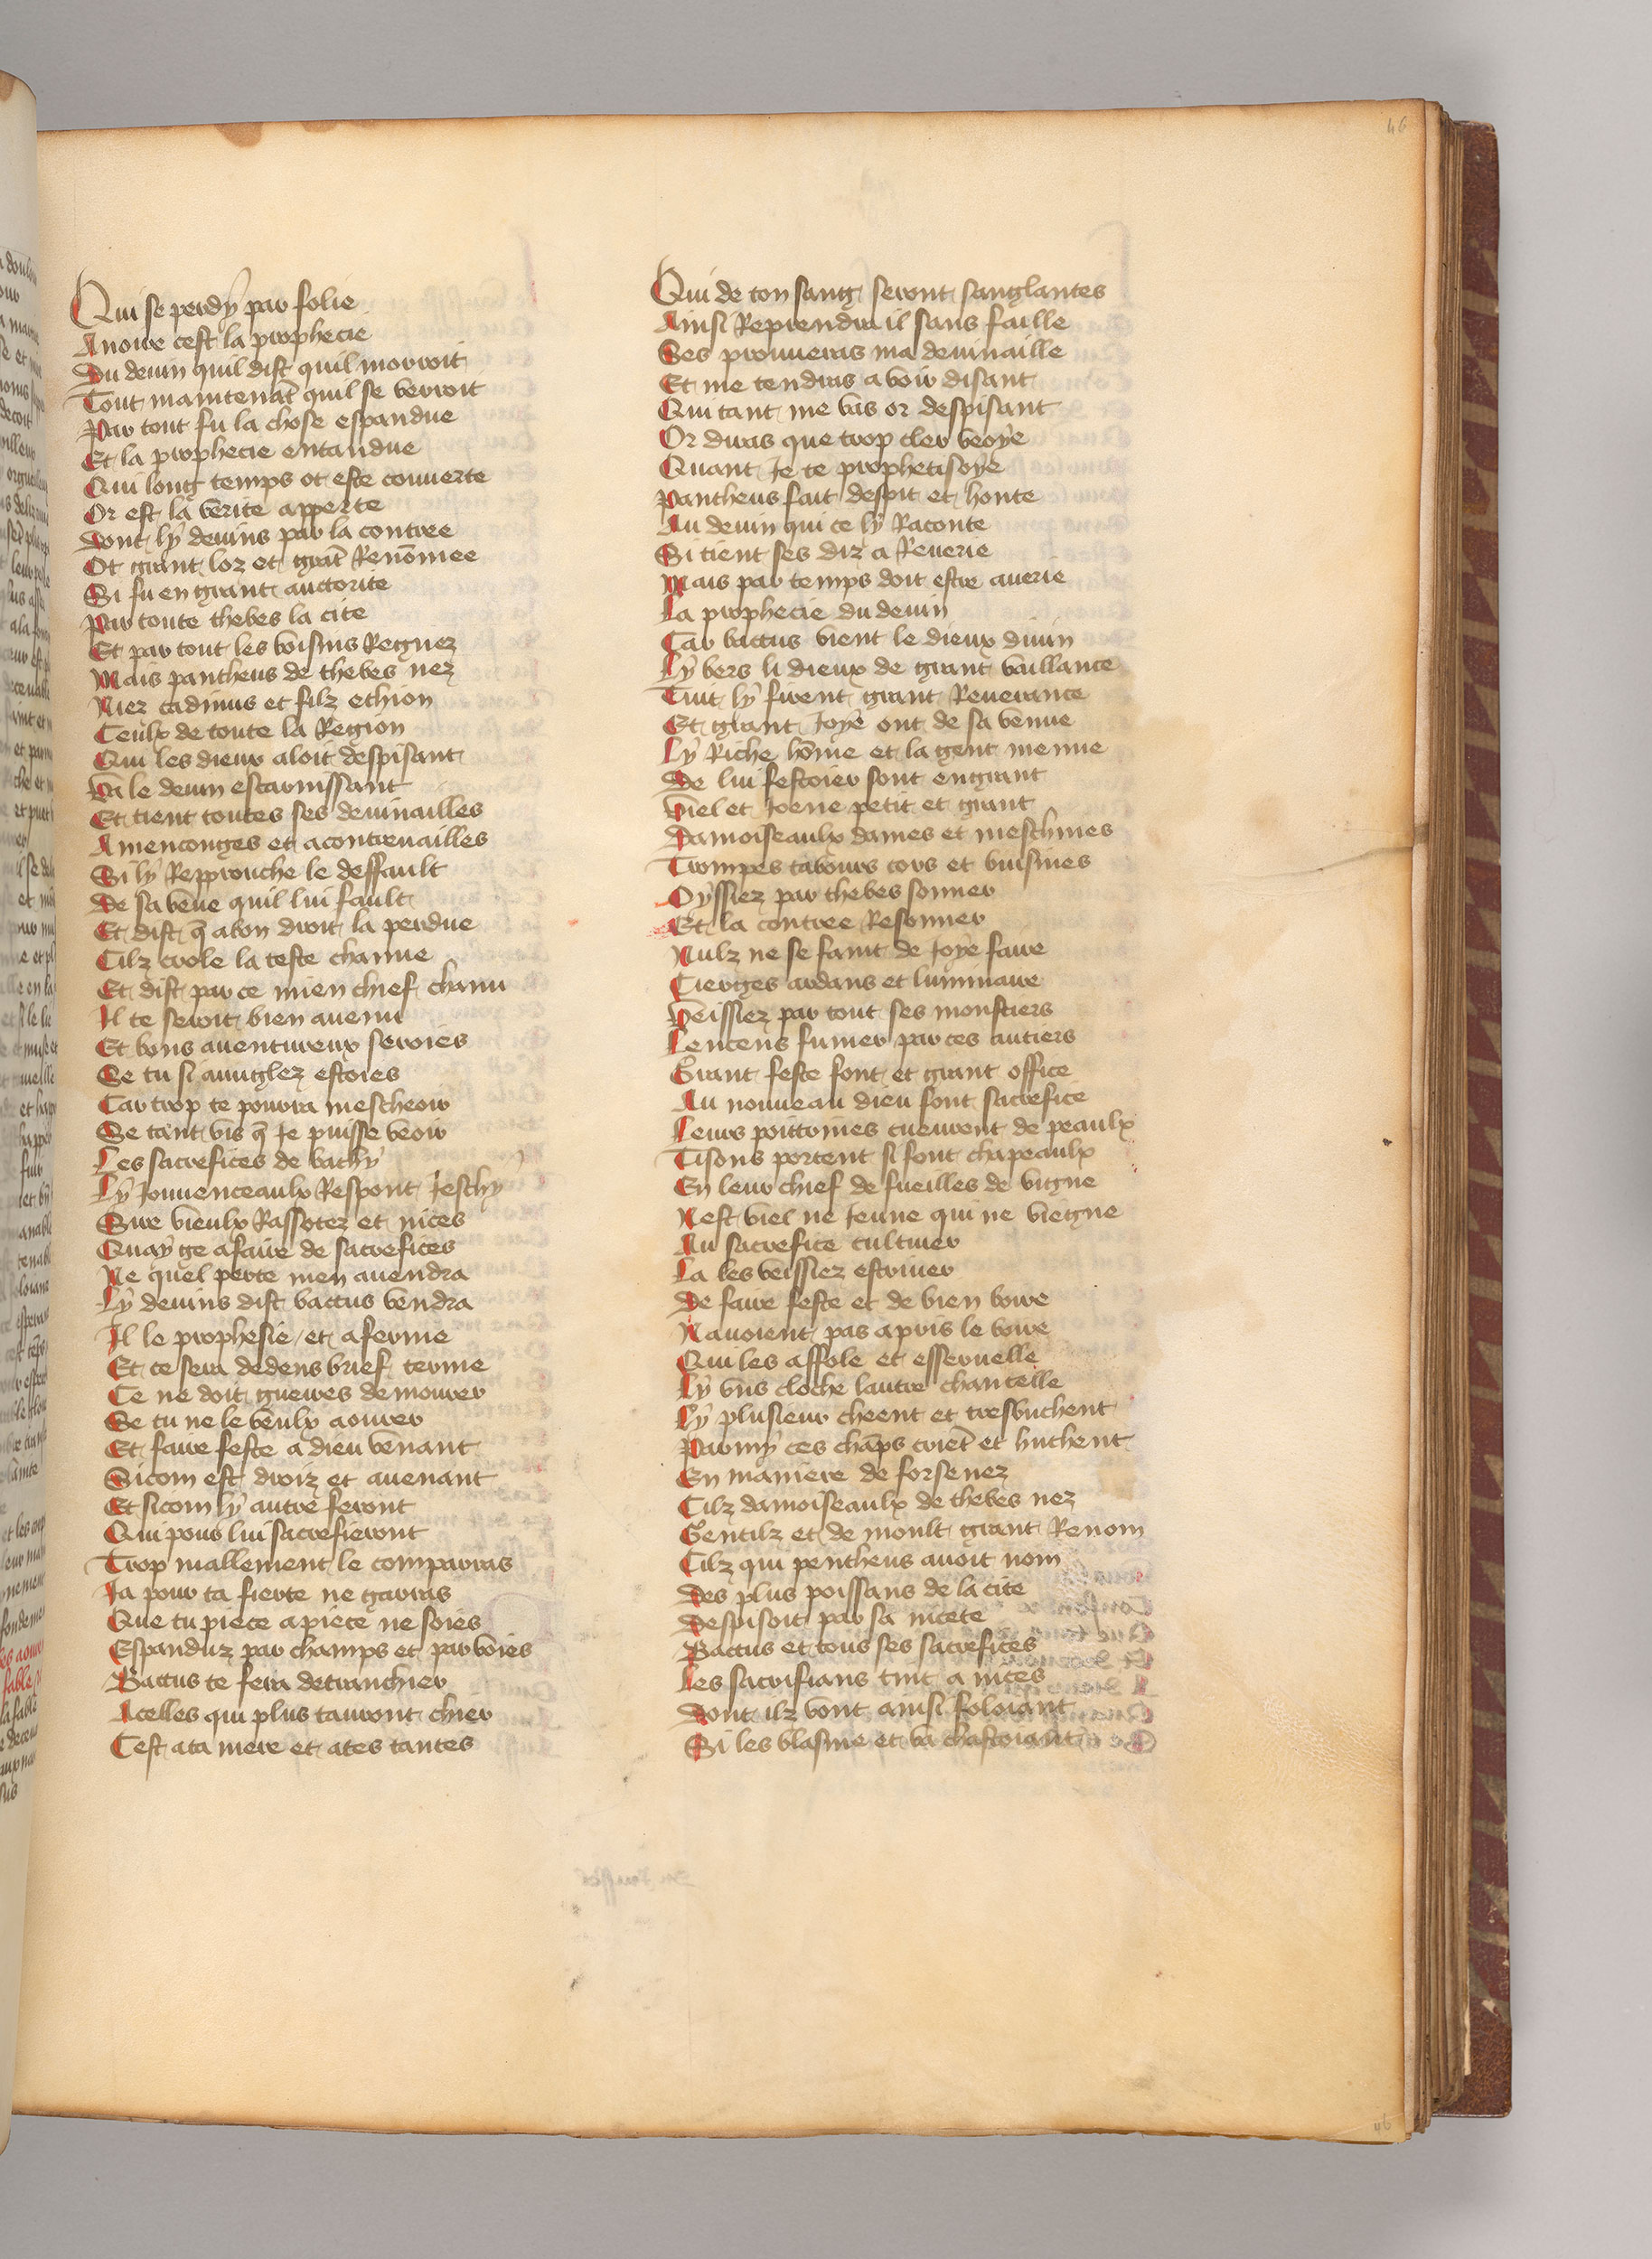 46
Qui se perdy par folie
Anoire cest la prophecie
Du devin quil dist quil morroit
Tout maintenãt quil se verroit
Par tout fu la chose espandue
Et la prophecie entandue
Qui long temps ot este couverte
Or est la verite apperte
Dont ly devins par la contree
Ot grant loz et grãt Renõmee
Si fu en grant auctorite
Par toute thebes la cite
Et par tout les voisins Regnez
Mais pantheus de thebes nez
Niez cadmus et filz ethion
Ceulx de toute la Region
Qui les dieux aloit despisant
Va le devin escarnissant
Et tient toutes ses devinailles
A menconges et a contrevailles
Si ly Repprouche le deffault
De sa veue quil lui fault
Et dist q̃ a bon droit la perdue
Cilz crole la teste chanue
Et dist par ce mien chief chanu
Il te seroit bien avenu
Et bons aventureux seroies
Se tu si auuglez estoies
Car trop te pourra mescheoir
Se tant vis q̃ Je puisse veoir
Les sacrefices de bachy
Ly Jouvenceaulx Respont Jeschy
Sire vieulx Rassotez et nices
Quay ge a faire de sacrefices
Ne quel perte men avendra
Ly devins dist bacus vendra
Il le prophesie et aferme
Et ce sera dedens brief terme
Ce ne doit gueires demourer
Se tu ne le veulx aourer
Et faire feste a dieu venant
Sicom est droiz et avenant
Et sicom ly autre feront
Qui pour lui sacrefieront
Trop mallement le comparras
Ja pour ta fierte ne garras
Que tu piece a piece ne soies
Espanduz par champs et par voies
Bacus te fera detranchier
A celles qui plus tauront chier
Cest a ta mere et a tes tantes
Qui de ton sang seront sanglantes
Ainsi Reprendra il sans faille
Ses prouveras ma devinaille
Et me tendras a voir disant
Qui tant me vas or despisant
Or diras que trop cler veoye
Quant Je te prophetisoye
Pantheus fait despit et honte
Au devin qui ce ly Raconte
Si tient ses diz a Reverie
Mais par temps doit estre averie
La prophecie du devin
Car bacus vient le dieux divin
Ly vers li dieux de grant vaillance
Tuit ly firent grant Reverance
Et grant Joye ont de sa venue
Ly Riche hõme et la gent menue
De lui festoier sont engrant
Viel et Joene petit et grant
Damoiseaulx dames et meschines
Trompes tabours cors et buisines
Oyssiez par thebes sonner
Et la contree Resonner
Nulz ne se faint de Joye faire
Cierges ardans et luminaire
Veissiez par tout ses monstiers
Lencens fumer par ces autiers
Grant feste font et grant office
Au nouveau dieu font sacrefice
Leurs poittrines cueuvrent de peaulx
Tisons portent si font chapeaulx
En leur chief de fueilles de vigne
Nest viel ne Jeune qui ne viegne
Au sacrefice cultiver
La les veissiez estriver
De faire feste et de bien boire
Navoient pas apris le boire
Qui les affole et esservelle
Ly uns cloche lautre chancelle
Ly plusieur cheent et tresbuchent
Parmy ces chãps criẽt et huchent
En maniere de forsenez
Cilz damoiseaulx de thebes nez
Gentilz et de moult grant Renom
Cilz qui pentheus avoit nom
Des plus poissans de la cite
Despisoit par sa nicete
Bacus et tous ses sacrefices
Les sacrifians tint a nices
Dont ilz vont ainsi foloiant
Si les blasme et va chastoiant
46